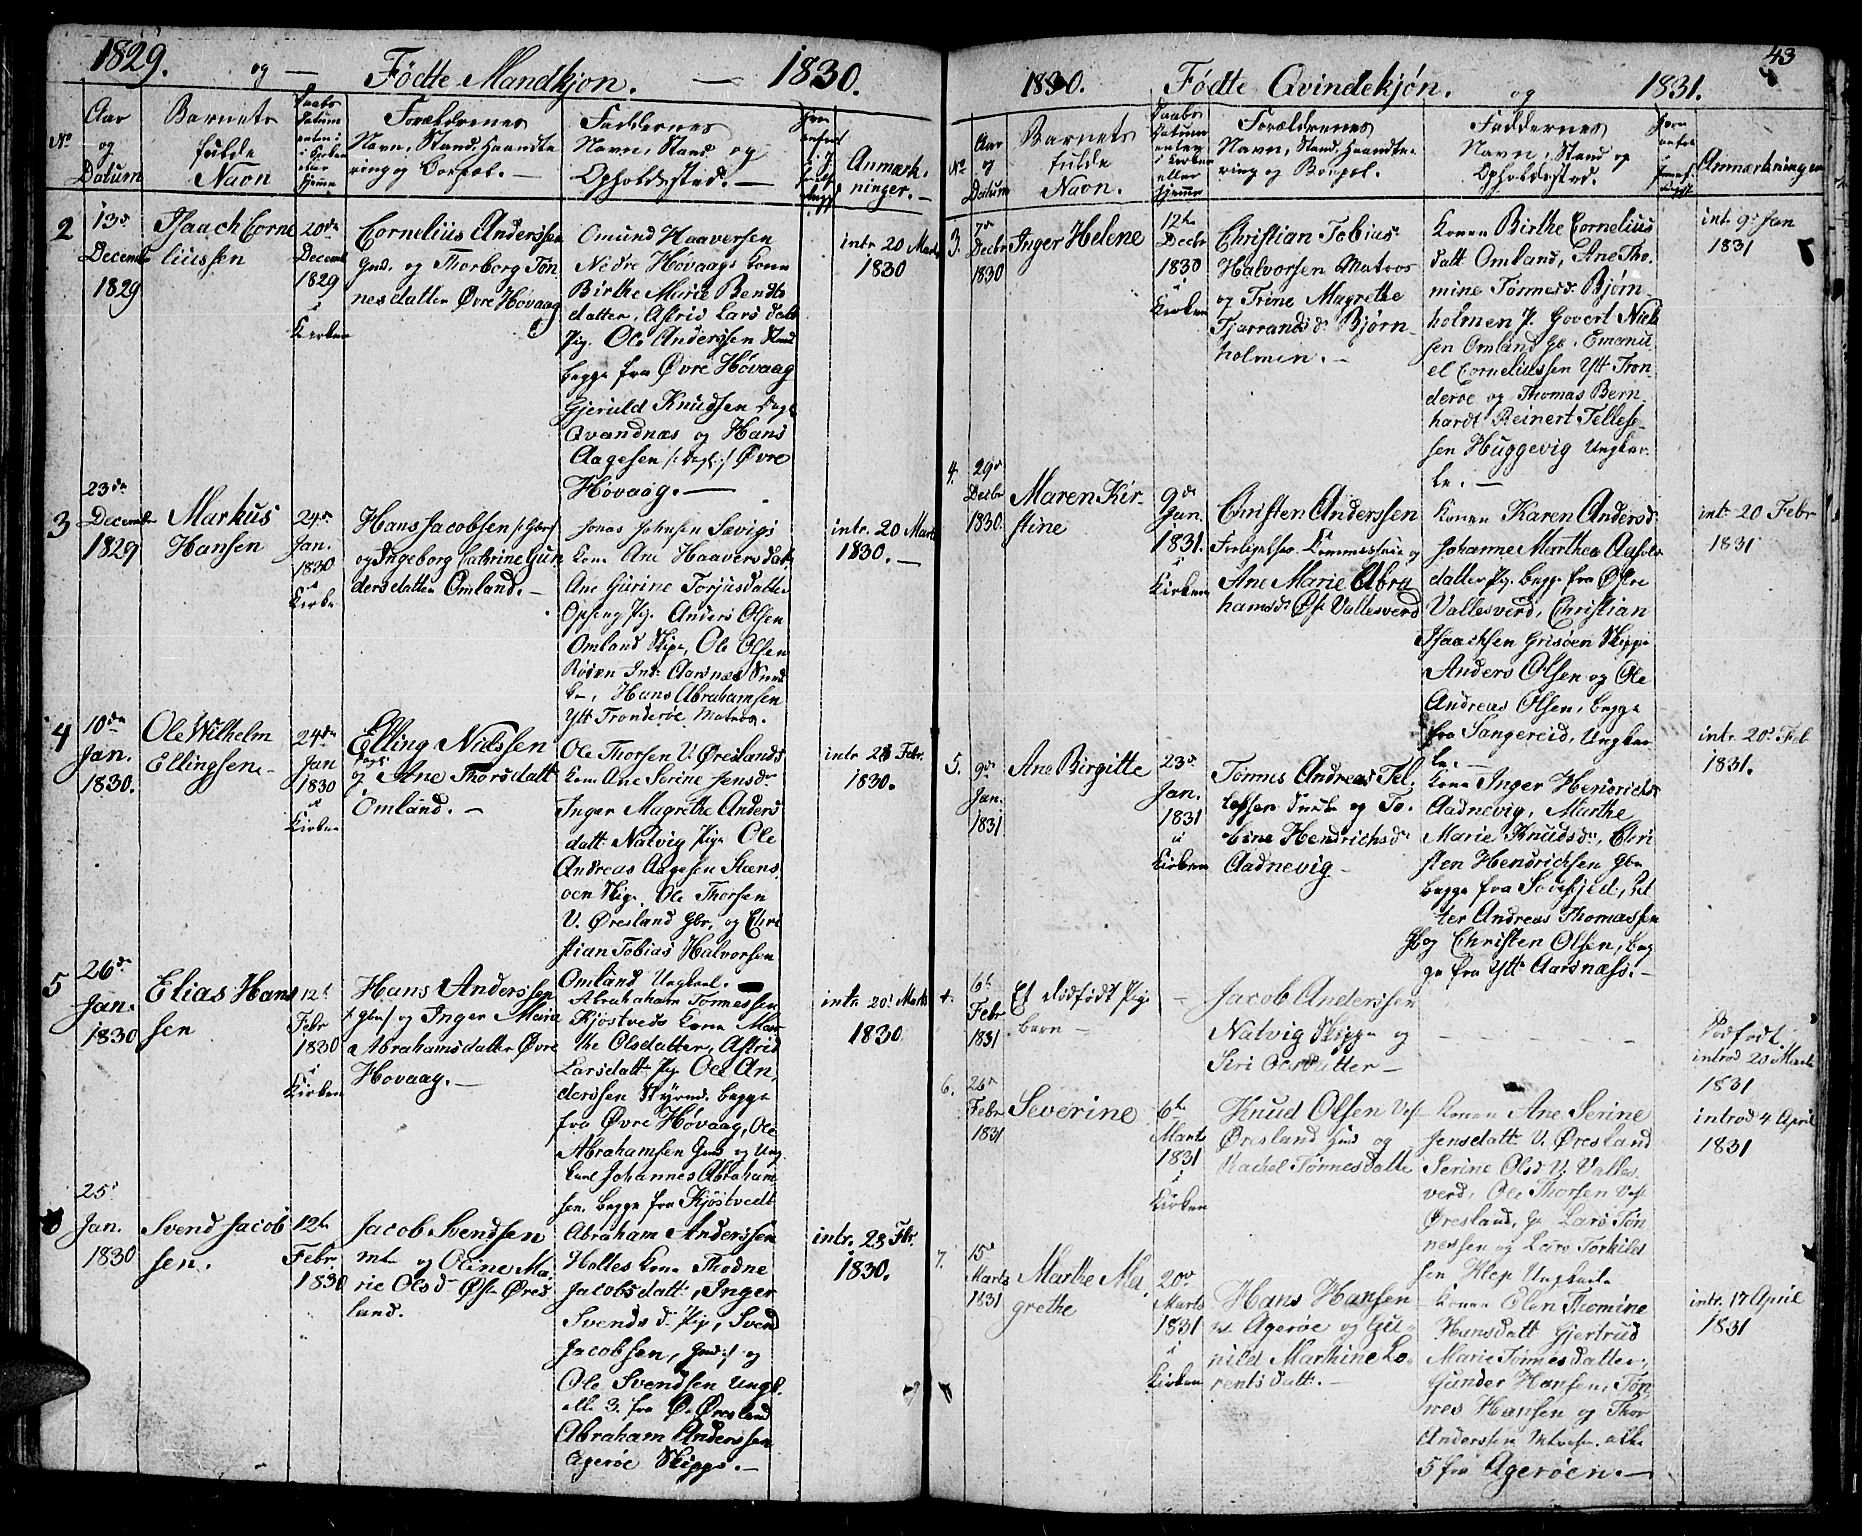 1829. og — Fødte Mandkjøn. — 1830.
No
Aar
og
Datum
Barnets
fulde
Navn
Daabs
Datum
enten i
Kirken
eller
hjemme
Forældrenes
Navn, Stand, Haandte
ring og Boepæl. —
Faddernes
Navn, Stand og
Opholdssted. —
Anmærk-
ninger. —
2
13de
Decembr
1829
Isaach Corne
liussen
20de
Decemb
1829
i
Kirken
Cornelius Anderssen
Gmd. og Thorborg Tøn
nesdatter Øvre Høvaag
Omund Haaversen
Nedre Høvaags Kone
Birthe Marie Bends
datter, Astrid Lars datt
Pig. Ole Anderssen
begge fra Øvre Høvaag
Gjeruld Knudsen
Qvandnæs og Hans
Aagesen Øvre
Høvaag. —
intr. 20 Marts
1830
3
23de
December
1829
Markus
Hansen
24de
Jan.
1830
i
Kirke
Hans Jacobsen /:Gbr:/
og Ingeborg Cathrine Gun
dersdatter Omland. —
Jonas Johnsen Sævigs
Kone Ane Haavers datt
Ane Gurine Torjusdatter
Opseng Pig. Anders Olsen
Omland Skip, Ole Olsen
Aarsnæs
Hans Abrahamsen
Ytt Tronderøe Matros.
intr. 20 Marts
1830. —
4
10de
Jan.
1830.
Ole Wilhelm
Ellingsen —
24de
Jan
1830
i
Kirken
Elling Nielssen
og Ane Thorsdatt
Omland. —
Ole Thorsen V. Øreslands
Kone Ane Serine Jensdr
Inger Magrethe Anders
datt Natvig Pige Ole
Andreas Aagesen Steens
oen Skip. Ole Thorsen
V. Øresland Gbr. og Chri
stian Tobias Halvorsen
Omland Ungkarl. —
intr. 28 Febr.
1830.
5
26de
Jan.
1830
Elias Hans
sen
12te
Febr
1830
i
Kirken
Hans Anderssen
/:Gbr:/ og Inger Maria
Abrahamsdatter Øvre
Hovaag. —
Abrahaham Tørmessen
Kjøstveds Kone Mar
the Olsdatter, Astrid
Larsdatt Pig Ole An,
derssen Styrmd. begge
fra Øvre Høvaag, Ole
Abrahamsen Gmd og Ung
karl Johannes Abraham
sen. begge fra Kjøstvedt
intr. 20de Marts
1830
6
25de
Jan.
1830
Svend Jacob
sen.
12te
Febr.
1830
Jacob Svendsen
og Oline Ma,
rie Olsd Øst Øres
land.
Abraham Anderssen
Holtes Kone Thodne
Jacobs datt, Inger
Svends d. Pig, Svend
Jacobsen, Gmd:/ og
Ole Svendsen Ungk.
alle 3. fra Ø. Øresland
Abraham Anderssen
Agerøe Skipper. —
intr. 28 Febr.
1830.
43
1830. Fødte Qvindekjøn. og 1831.
No
Aar
og
Datum
Barnets
fulde
Navn.
Daabs
Datum
enten
i Kirken
eller
hjemme
Forældrenes
Navn, Stand, Haandte-
ring og Boepæl.
Faddernes
Navn, Stand og
Opholdssted.
Anmærkninger
3.
7de
Decbr
1830
Inger Helene
12te
Decbr
1830
i
Kirken
Christian Tobias
Halvorsen Matros
og Trine Magrethe
Tjerrandsdr Bjørn-
holmen. —
Konen Birthe Cornelius
datt Omland, Ane Tho,
mine Tørmesdr Bjørn-
holmen P. Govert Niels
sen Omland Gb. Emanu
el Corneliussen Ytt Tron-
deroe og Thomas Bern-
hardt Reinert Tellefs-
sen Huggevig Ungkar-
le. —
intr 9de Jan
1831
4.
29de
Decbr
1830.
Maren Kir-
stine
9de
Jan.
1831.
i
Kirken
Christen Anderssen
Forligelses Commissair og
Ane Marie Abra
hamsdr Øst Vallesverd
Konen Karen Andersd.
Johanne Marthea Aasols
datter Pig. begge fra Østre
Vallesverd, Christian
Isaachsen Grisøen Skipper
Anders Olsen og Ole
Andreas Olsen, begge
fra Sangereid, Ungkar
le. —
intr 20 Febr
1831
5.
9de
Jan.
1831
Ane Birgitte
23de
Jan.
1831
i
Kirken
Tønnes Andreas Tel-
lefssen og To-
bine Hendrichsdr
Aadnevig —
Kone Inger Hendrichsdr
Aadnevig, Marthe
Marie Knudsdr, Chri
sten Hendrichsen Gbr
begge fra Sovefjed, Pet
ter Andreas Thomassen
og Christen Olsen, beg
ge fra Ytt Aarsnæss. —
intr. 20de Feb
1831.
6te
Febr
1831
Et dødfødt Pige
barn —
—
Jacob Anderssen
Natvig Skipper og
Siri Olesdatter —
— — — — —
Dødfødt.
introd 20 Marts
1831
6.
26de
Febr
1831
Severine
6te
Marts
1831
i
Kirken
Knud Olsen Vest
Øresland Gmd og
Rachel Tørnesdatter
Konen Ane Serine
Jensdatt V. Øresland
Serine Olsd V. Valles
verd, Ole Thorsen Vest
Øresland, Gb Lars Tøn
nessen og Lars Torkilds
sen Klep Ungkarle
introd 4 April
1831
7.
15de
Marts
1831
Marthe Ma,
grethe
20de
Marts
1831
i
Kirken
Hans Hansen
Agerøe og Gu-
nild Marthine Lo-
rents datt. —
Konen Elen Thomine
Hansdatt Gjertrud
Marie Tørmes datter,
Gunder Hansen, Tøn
nes Hansen og Thor
Anderssen alle
5 fra Agerøen. —
intr. 17 April
1831